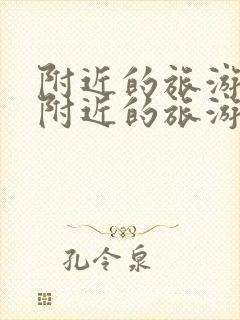 附近的旅游
附近的旅游
孔令泉